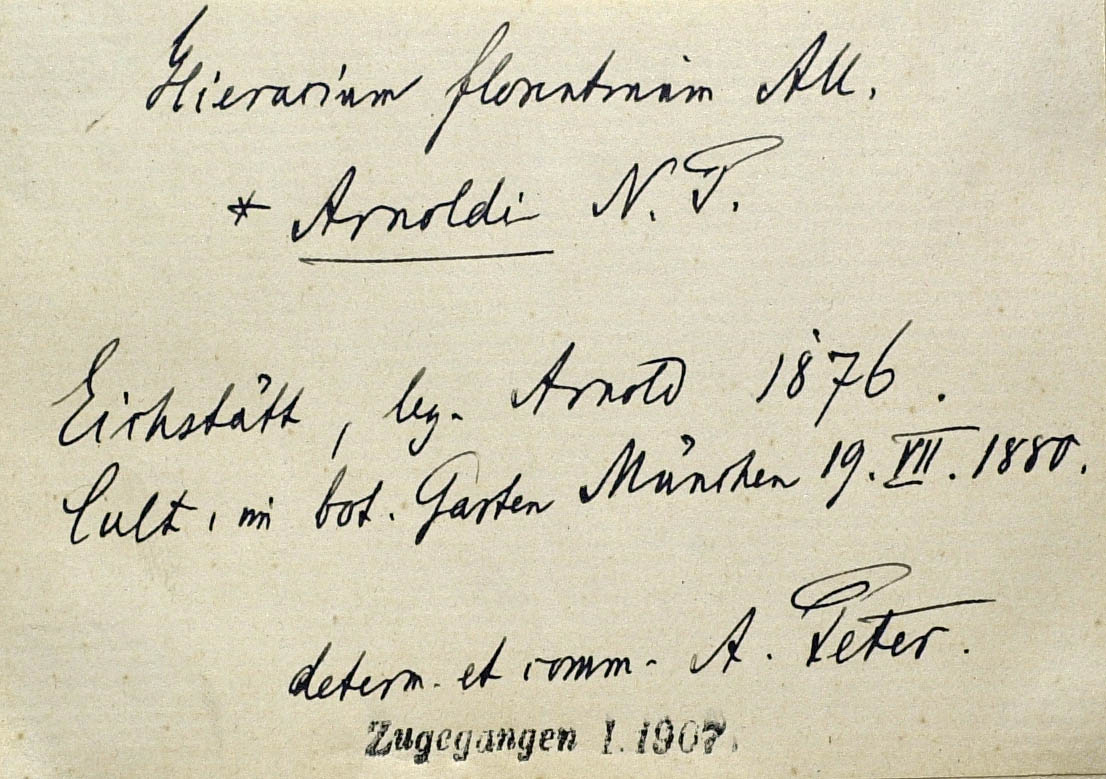 Hieracium florentinum All.
* Arnoldi N. P.
Eichstätt, leg. Arnold 1876.
Cult. im bot. Garten München 19. VII. 1880.
determ. et comm. A. Peter.
Zugegangen I. 1907.